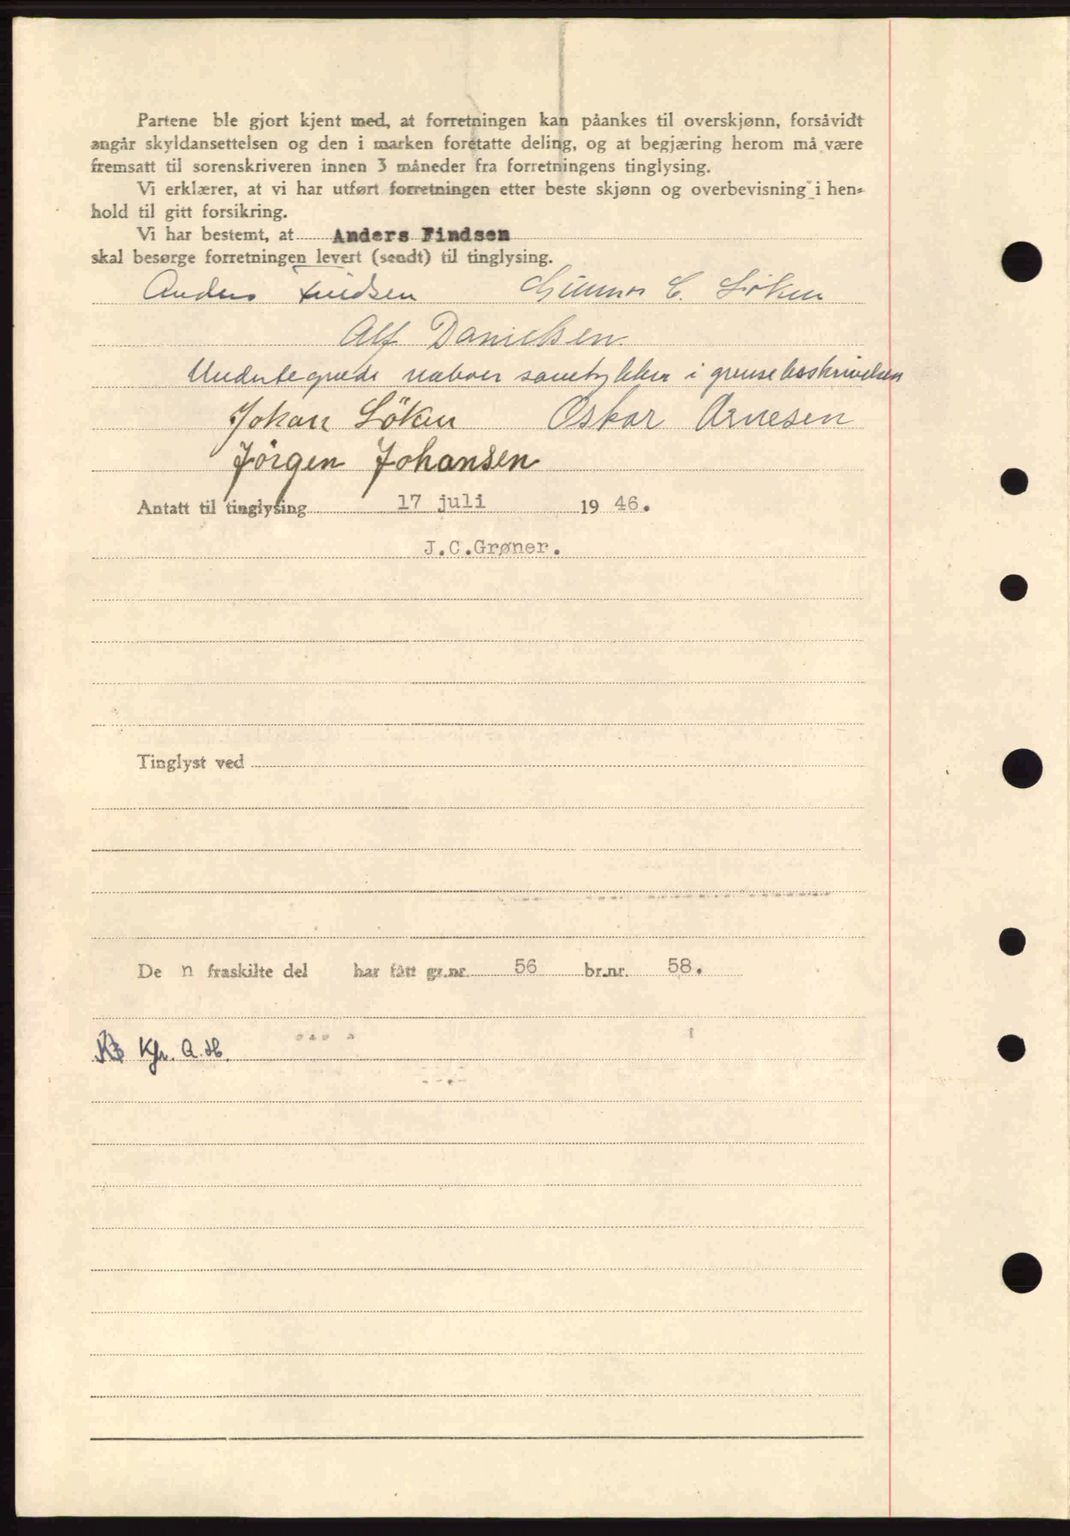 Partene ble gjort kjent med, at forretningen kan påankes til overskjønn, forsåvidt
angår skyldansettelsen og den i marken foretatte deling, og at begjæring herom må være
fremsatt til sorenskriveren innen 3 måneder fra forretningens tinglysing.
Vi erklærer, at vi har utført forretningen etter beste skjønn og overbevisning i hen-
hold til gitt forsikring.
Vi har bestemt, at Anders Findsen
skal besørge forretningen levert (sendt) til tinglysing.
Anders Findsen Gunnar C. Löken
Alf Danielsen
Undertegnede naboer samtykker i grensebeskrivelsen
Johan Löken Oskar Arnesen
Jörgen Johansen
Antatt til tinglysing 17 juli 1946.
J.C.Grøner.
Tinglyst ved
De n fraskilte del har fått gr.nr. 56 br.nr. 58.
Kfr. A.H.